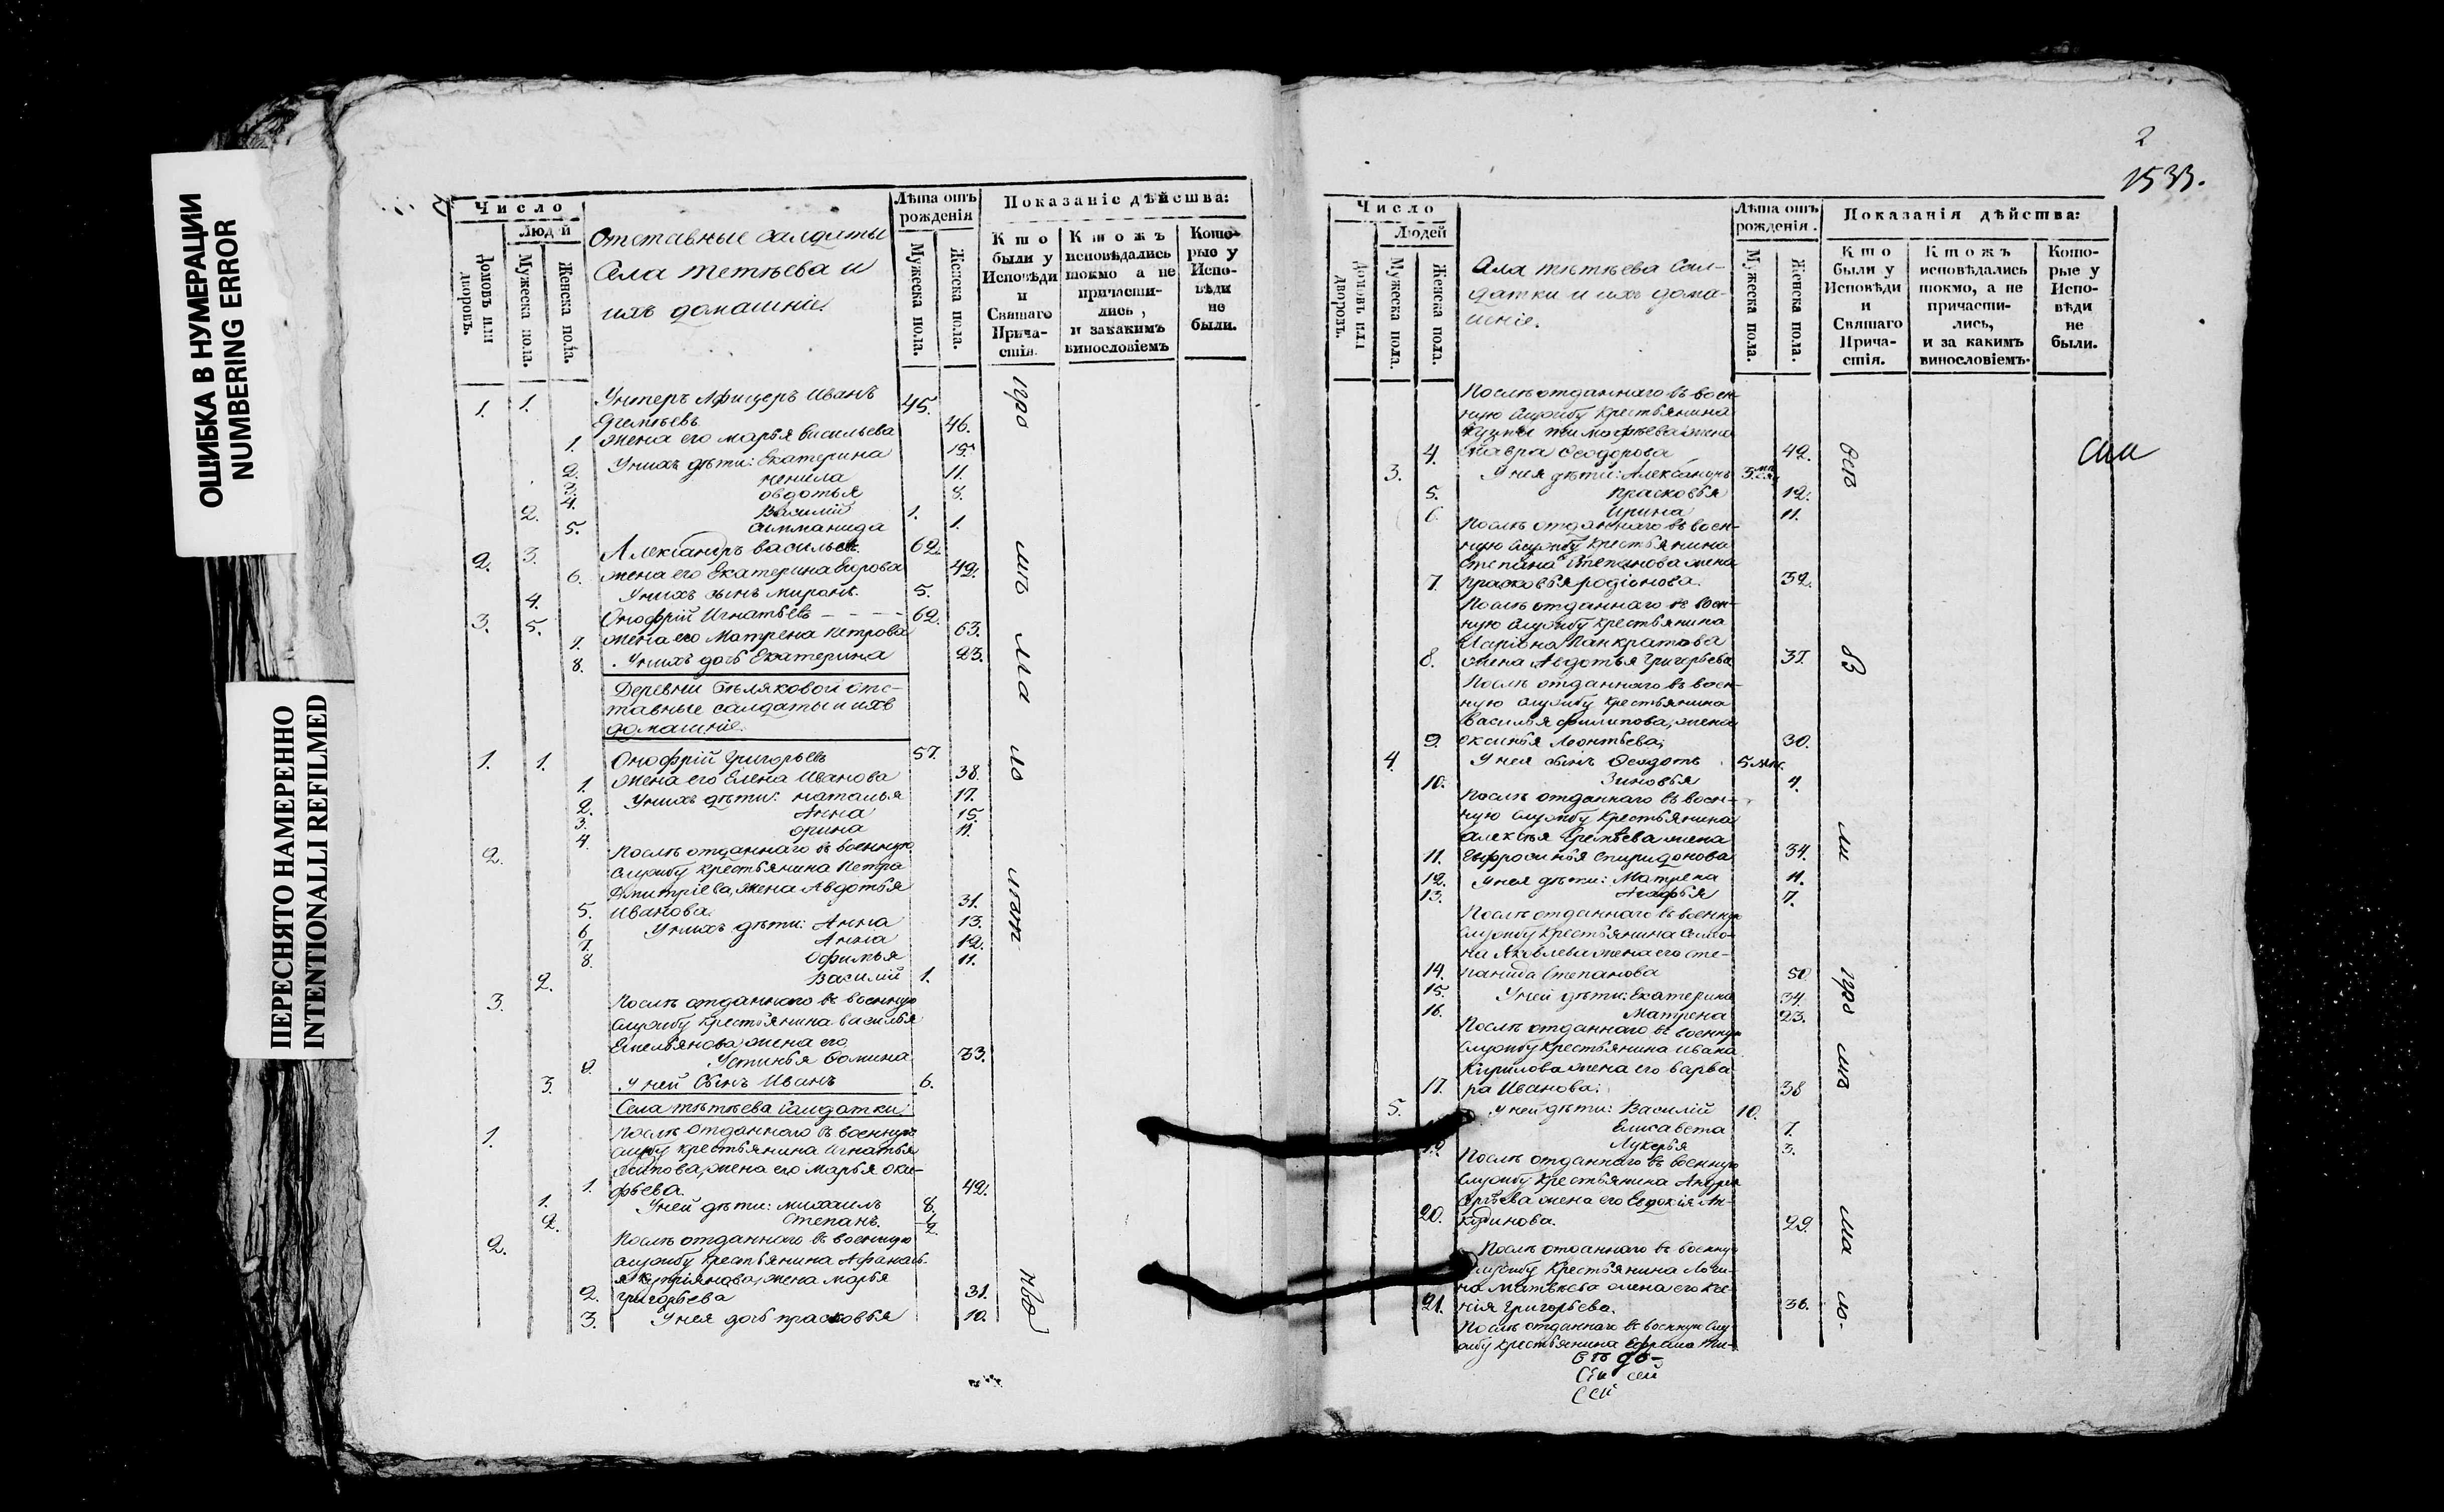 ОШИБКА В НУМЕРАЦИИ
NUMBERING ERROR
ПЕРЕСНЯТО НАМЕРЕННО
INTENTIONALLI REFILMED
Число
Людей
Домовъ или дворовъ.
Мужеска пола.
Женска пола.
Отставные салдаты
Села тетѣева и
ихъ домашніе.
Лѣта отъ рожденія
Мужеска пола.
Женска пола.
Показаніе дѣйства:
Кто были у Исповѣди и Святаго Прича-стія.
Ктожъ исповѣдались токмо а не причасти-лись, и закакимъ винословіемъ
Кото-рые у Испо-вѣди не были.
1. 1. Унтеръ Афицеръ Иванъ 45.
1. жена его марья васильева 46.
2. Унихъ дѣти: Екатерина 15.
3. ненила 11.
4. овдотья 8.
2. Василій 1.
5. 1.
2. 3. Александръ васильевъ. 62.
6. жена его Екатерина Егорова 42.
4. Унихъ сынъ миронъ. 5.
3. 5. Онофрій Игнатьевъ 62.
7. жена его Матрена петрова 63.
8. Унихъ дочь Екатерина 23.
Деревни бѣляковой отс-
тавные салдаты и ихъ
домашніе.
1. 1. Онофрій Григорьевъ 57.
1. жена его Елена Иванова 38.
2. Унихъ дѣти: наталья 17.
3. Анна 15.
4. орина 11.
2. Послѣ отданнаго въ военную
службу крестьянина Петра
Дмитріева, жена Авдотья
5. Иванова. 31.
6. Унихъ дѣти: Анна 13.
7. Анна 12.
8. Офимья 11.
2. Василій 1.
3. Послѣ отданнаго въ военную
службу крестьянина василья
Емельянова жена его
9. Устинья Фомина 33.
3. Уней Сынъ Иванъ 6.
Села тѣтѣева Салдатки
1. Послѣ отданнаго въ военную
службу крестьянина Игнатья
жена его марья оки-
1. фьева. 42.
1. Уней дѣти: михаилъ 8.
2. Степанъ.
2. Послѣ отданнаго въ военную
службу крестьянина Афанась-
я Купріянова, жена марья
2. григорьева 31.
3. Унея дочь прасковья 10.
2
1533.
Число
Людей
Домовъ или дворовъ.
Мужеска пола.
Женска пола.
Села тѣтѣева Сал-
датки и ихъ дома-
шніе.
Лѣта отъ рожденія.
Мужеска пола.
Женска пола.
Показанія дѣйства:
Кто были у Исповѣди и Святаго Прича-стія.
Ктожъ исповѣдались токмо, а не причасти-лись, и за какимъ винословіемъ.
Кото-рые у Испо-вѣди не были.
Послѣ отданнаго въ воен-
ную службу крестьянина
Кузмы тимофѣева жена
4. Мавра Феодорова 42.
3. Унея дѣти: Александръ
5. прасковья 12.
6. Ирина 11.
Послѣ отданнаго въ воен-
ную службу крестьянина
Степана Степанова жена
7. прасковья родіонова. 32.
Послѣ отданнаго въ воен-
ную службу крестьянина
Иларіона Панкратова
8. жена Авдотья Григорьева 37.
Послѣ отданнаго въ воен-
ную службу крестьянина
Василья филипова, жена
9. оксинья Леонтьева; 30.
4. Унея сынъ Феодотъ
10. Зиновья 4.
Послѣ отданнаго въ воен-
ную службу крестьянина
алексѣя жена
11. Ефросинья спиридонова 34.
12. Унея дѣти: Матрена 11.
13. Агафья 7.
Послѣ отданнаго въ военную
службу крестьянина Симо-
на Яковлева жена его сте-
14. панида Степанова 50
15. Уней дѣти: Екатерина 34.
16. Матрена 23.
Послѣ отданнаго въ военную
службу крестьянина ивана
Кирилова жена его варва-
17. ра Иванова: 38
5. Уней дѣти: Василій 10.
Елисавета 7.
Лукерья 3.
Послѣ отданнаго въ военную
службу крестьянина Андрея
жена его Евдокія Ан-
20. кудинова. 29.
Послѣ отданнаго въ военную
службу крестьянина Логи-
на Матвѣева жена его Ксе-
21. нія Григорьева. 36.
Послѣ отданнаго въ военную слу
жбу крестьянина Ефрема ти-